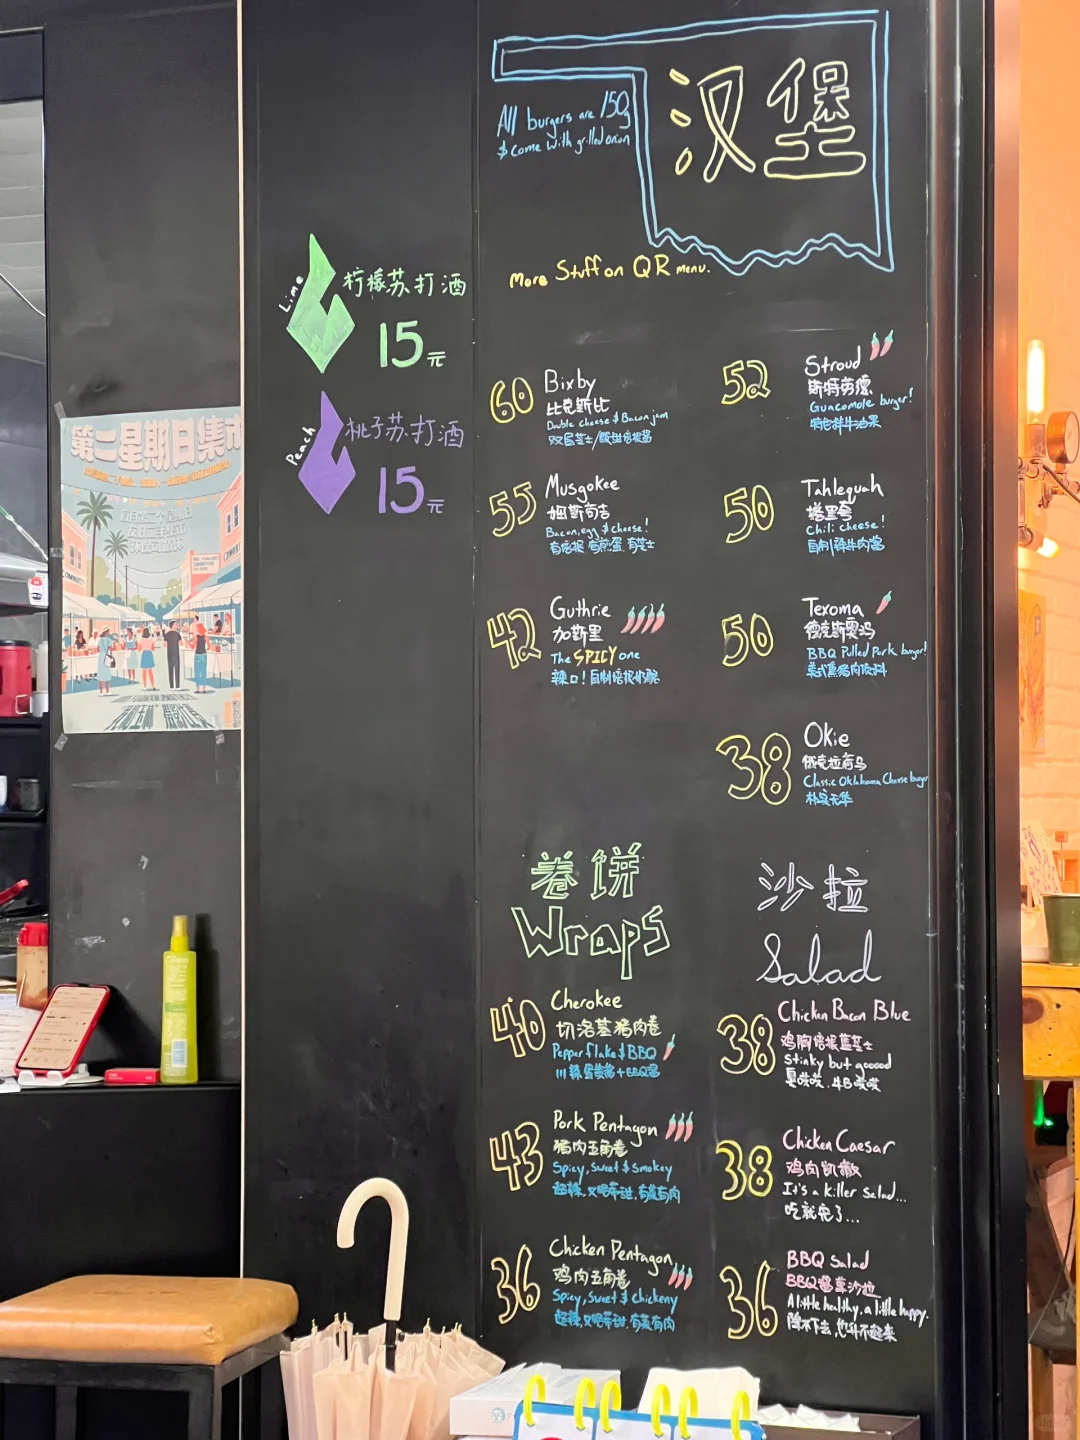 汉堡
All burgers are 150g
& come with grilled onion
More Stuff on QR menu.
Lime
柠檬苏打酒
15元
Peach
桃子苏打酒
15元
60
Bixby
比克斯比
Double cheese & Bacon jam
双层芝士/酸甜培根酱
55
Musgokee
姆斯苟吉
Bacon, egg, & cheese!
有培根 有煎蛋 有芝士
42
Guthrie
加斯里
The SPICY one
辣口!自制培根奶酪
52
Stroud
斯特劳德
Guacomole burger!
牛油果
50
Tahlequah
塔里夸
Chili cheese!
自制辣牛肉酱
50
Texoma
德克斯奥玛
BBQ Pulled Pork burger!
美式熏猪肉
38
Okie
俄克拉荷马
Classic Oklahoma Cheese burger
朴实无华
卷饼
Wraps
40
Cherokee
切洛基猪肉卷
Pepper flake & BBQ
川辣蛋黄酱+BBQ酱
43
Pork Pentagon
猪肉五角卷
Spicy, Sweet & Smokey
超辣,又咽带甜,有菜有肉
36
Chicken Pentagon
鸡肉五角卷
Spicy, Sweet & Chickeny
超辣,又咽带甜,有菜有肉
沙拉
Salad
38
Chicken Bacon Blue
鸡胸培根蓝芝士
Stinky but gooood
臭哄哄,牛B哄哄
38
Chicken Caesar
鸡肉凯撒
It's a killer salad...
吃就完了...
36
BBQ Salad
BBQ酱草沙拉
A little healthy, a little happy.
降不下去,也升不起来
第二星期日集市
COMMUNITY